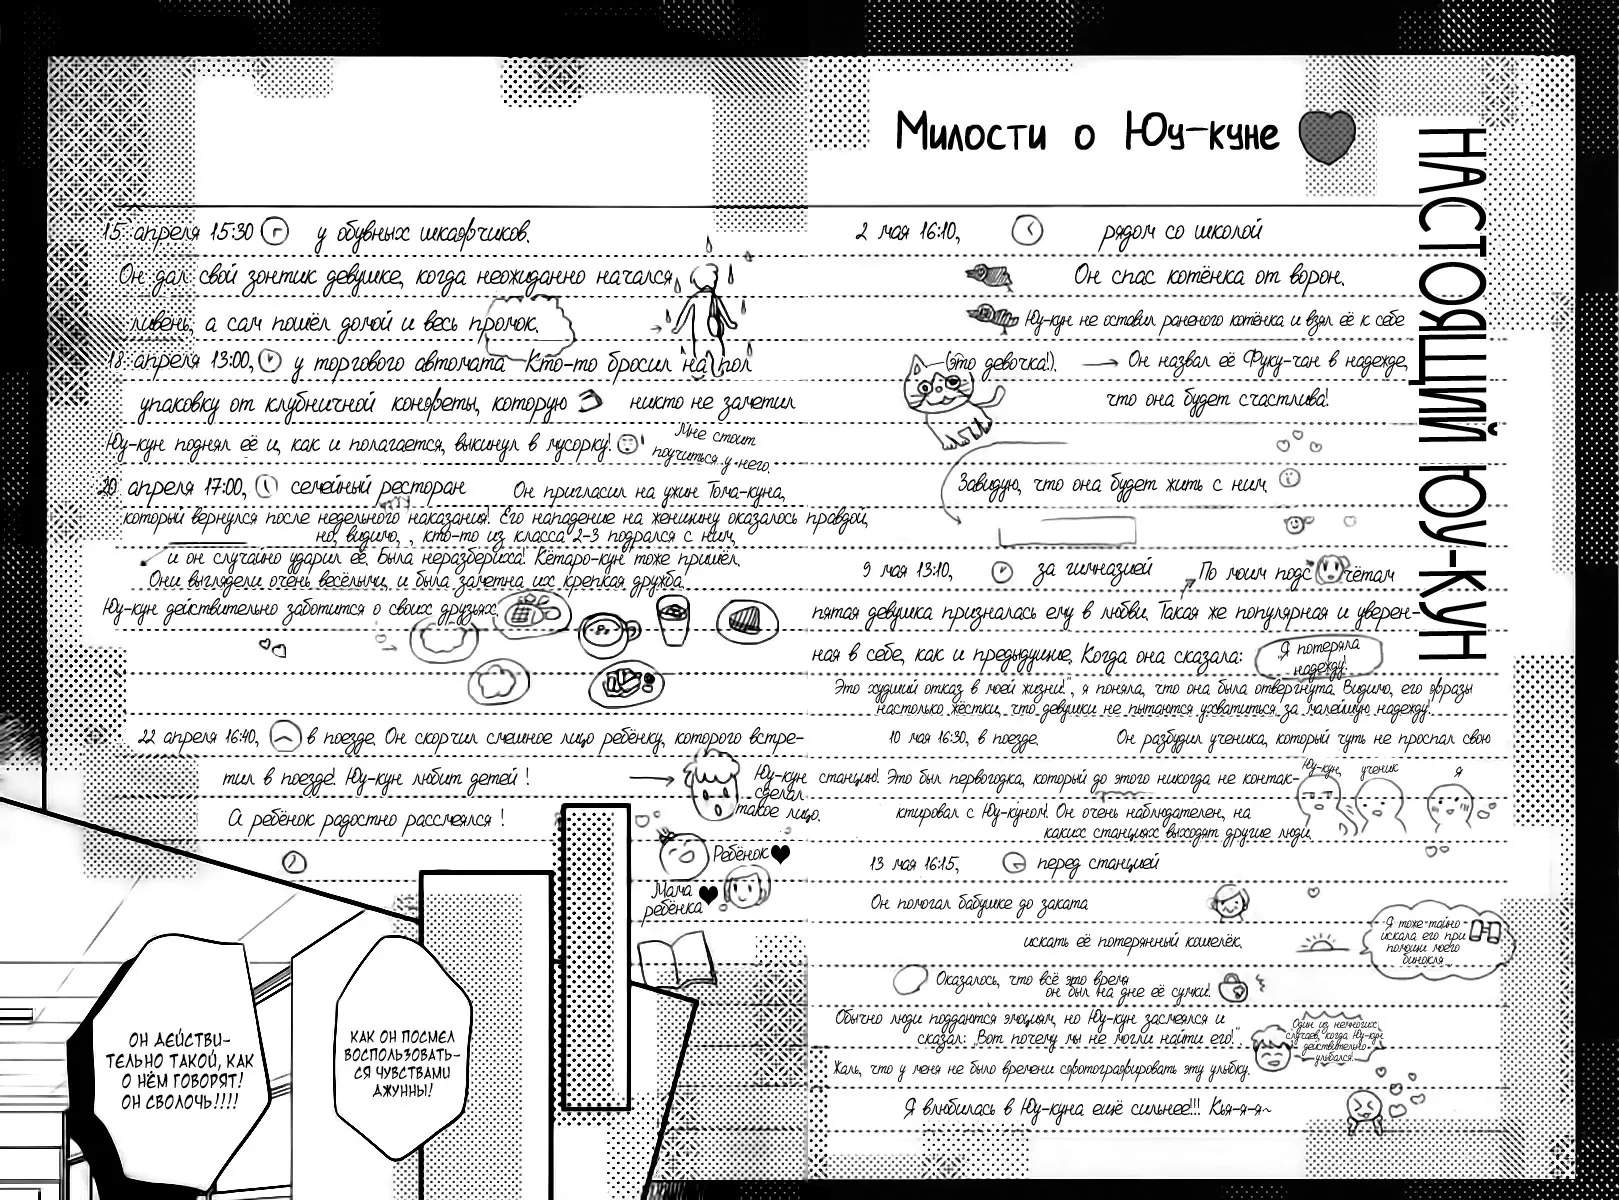 Милости о Юу-куне
НАСТОЯЩИЙ ЮУ-КУН
15 апреля 15:30 у обувных шкафчиков.
Он дал свой зонтик девушке, когда неожиданно начался
ливень, а сам пошёл домой и весь промок.
18 апреля 13:00, у торгового автомата Кто-то бросил на пол
упаковку от клубничной конфеты, которую никто не заметил
Юу-кун поднял её и, как и полагается, выкинул в мусорку!
Мне стоит
поучиться у него.
20 апреля 17:00, семейный ресторан Он пригласил на ужин Тома-куна,
который вернулся после недельного наказания! Его нападение на женщину оказалось правдой,
но, видимо, , кто-то из класса 2-3 подрался с ним,
и он случайно ударил её. Была неразбериха! Кётаро-кун тоже пришёл.
Они выглядели очень весёлыми, и была заметна их крепкая дружба.
Юу-кун действительно заботится о своих друзьях.
22 апреля 16:40, в поезде. Он скорчил смешное лицо ребёнку, которого встре-
тил в поезде! Юу-кун любит детей !
А ребёнок радостно рассмеялся !
Юу-кун
сделал
такое лицо.
Ребёнок
Мама
ребёнка
2 мая 16:10, рядом со школой
Он спас котёнка от ворон.
Юу-кун не оставил раненого котёнка и взял её к себе
(это девочка!). Он назвал её Фуку-чан в надежде,
что она будет счастлива!
Завидую, что она будет жить с ним
9 мая 13:10, за гимназией По моим подсчётам
пятая девушка призналась ему в любви. Такая же популярная и уверен-
ная в себе, как и предыдущие. Когда она сказала: „Я потеряла
надежду!
Это худший отказ в моей жизни!", я поняла, что она была отвергнута. Видимо, его фразы
настолько жёстки, что девушки не пытаются ухватиться за малейшую надежду!
10 мая 16:30, в поезде. Он разбудил ученика, который чуть не проспал свою
станцию! Это был первогодка, который до этого никогда не контак-
ктировал с Юу-куном! Он очень наблюдателен, на
каких станциях выходят другие люди.
Юу-кун, ученик я
13 мая 16:15, перед станцией
Он помогал бабушке до заката
искать её потерянный кошелёк.
Я тоже тайно
искала его при
помощи моего
бинокля...
Оказалось, что всё это время
он был на дне её сумки!
Обычно люди поддаются эмоциям, но Юу-кун засмеялся и
сказал: „Вот почему мы не могли найти его!".
Один из немногих
случаев, когда Юу-кун
действительно
улыбался.
Жаль, что у меня не было времени сфотографировать эту улыбку.
Я влюбилась в Юу-куна ещё сильнее!!! Кья-я-я~
КАК ОН ПОСМЕЛ
ВОСПОЛЬЗОВАТЬ-
СЯ ЧУВСТВАМИ
АЖУННЫ!
ОН ДЕЙСТВИ-
ТЕЛЬНО ТАКОЙ, КАК
О НЁМ ГОВОРЯТ!
ОН СВОЛОЧЬ!!!!